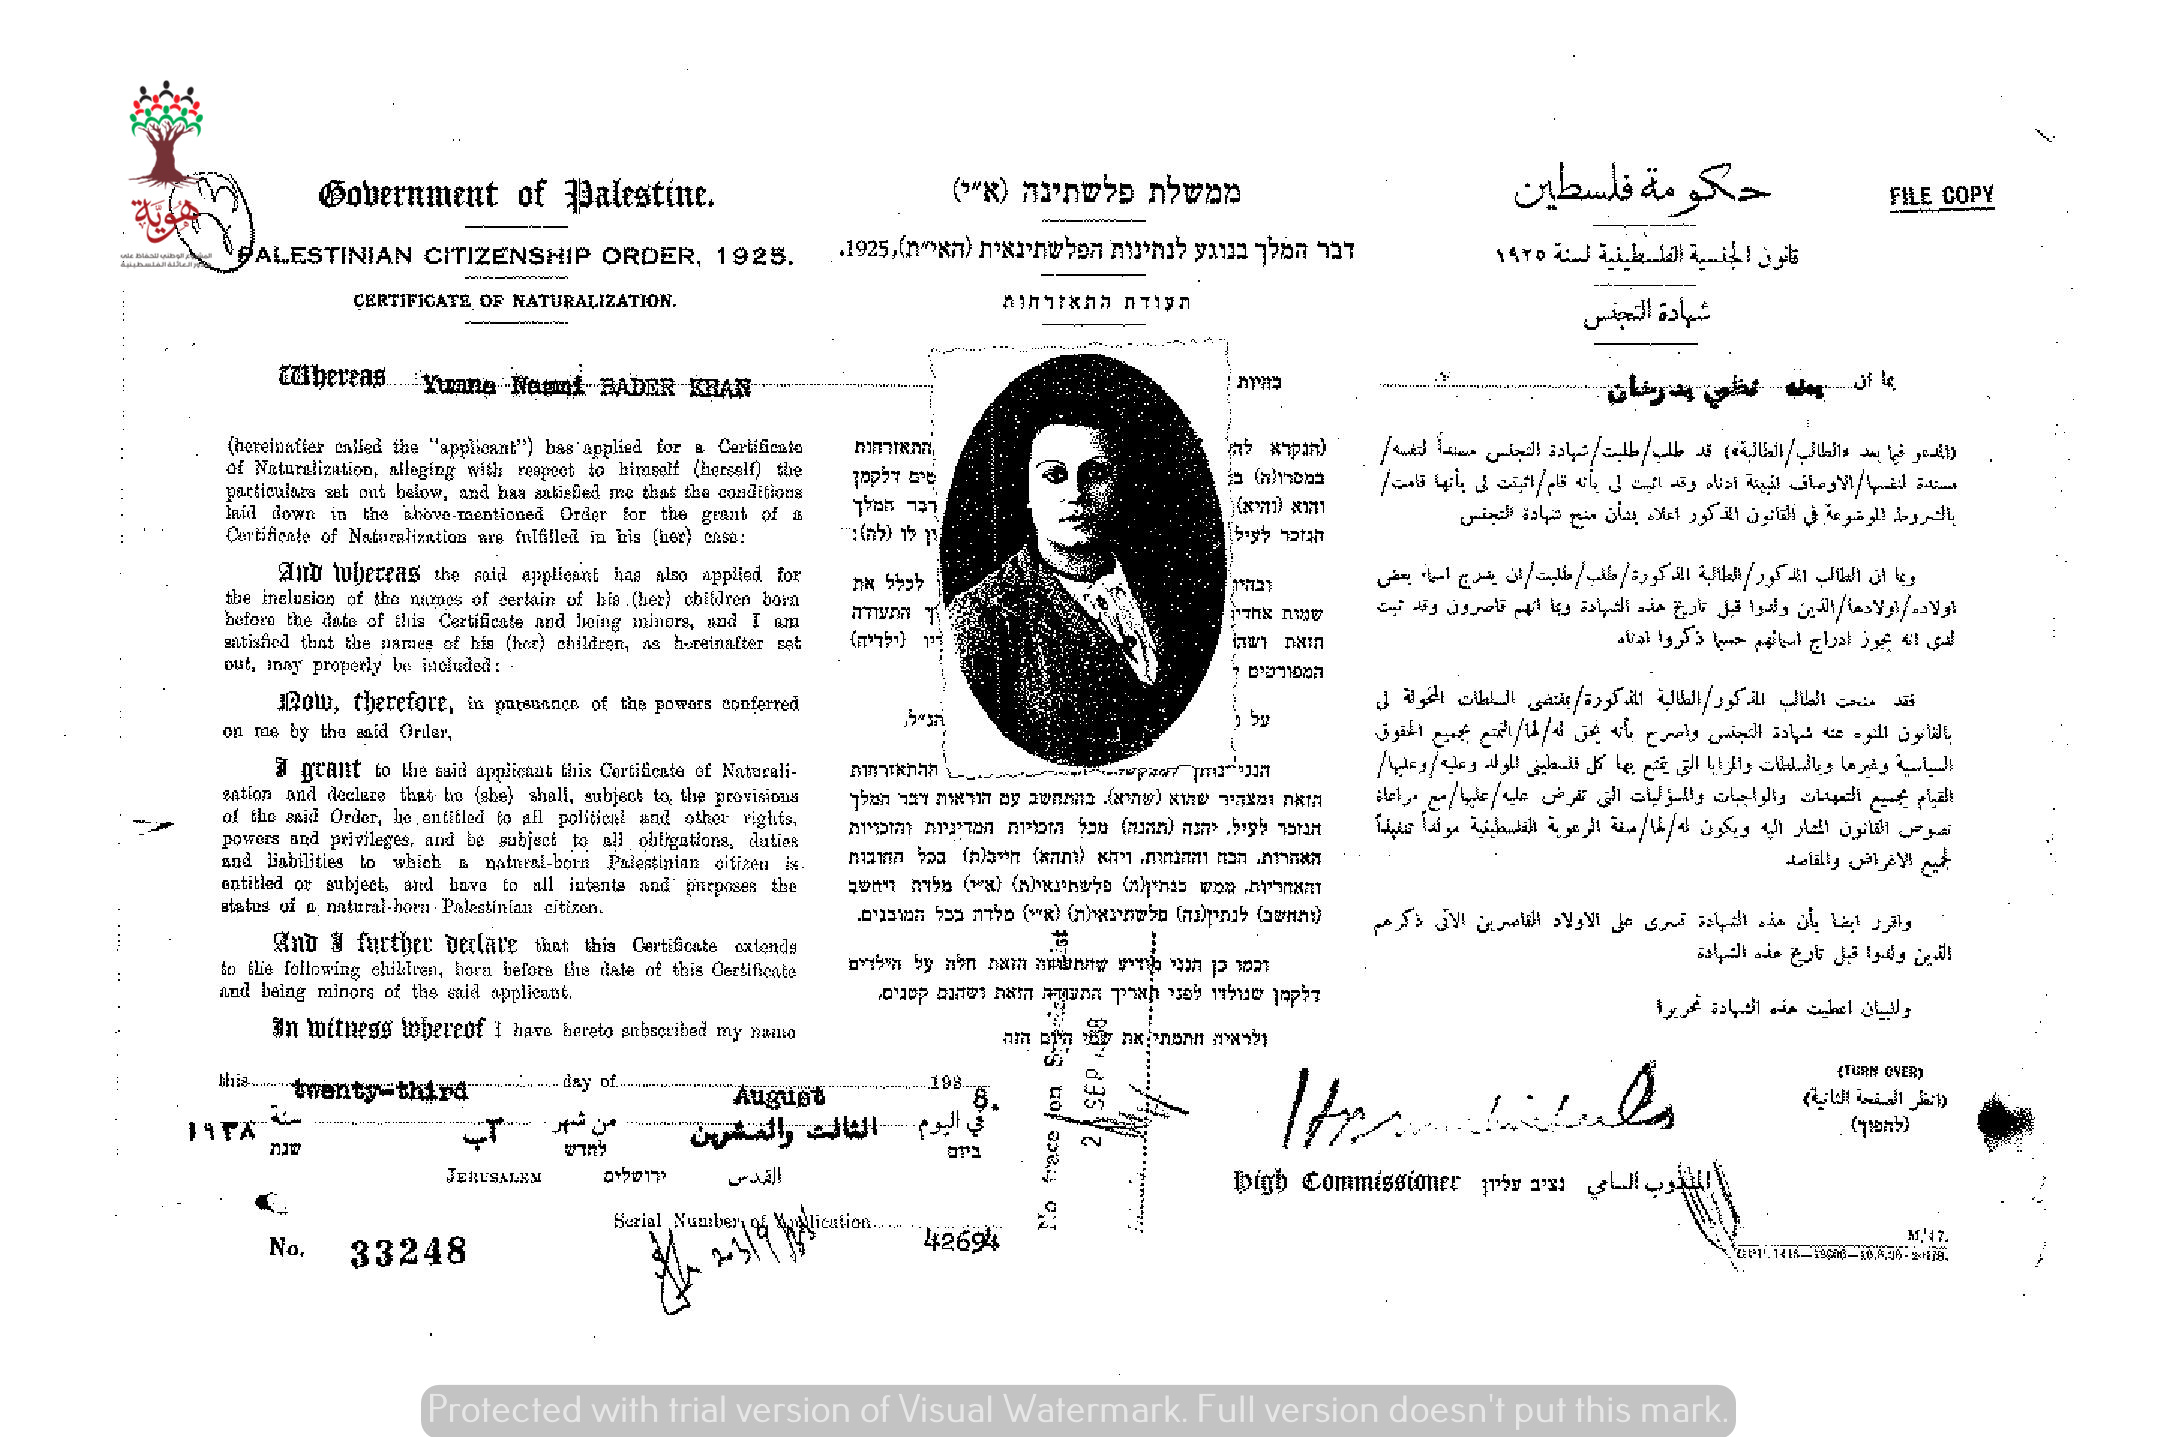 Government of Palestine.
PALESTINIAN CITIZENSHIP ORDER, 1925.
CERTIFICATE OF NATURALIZATION.
Whereas BADER KHAN
(hereinafter called the "applicant") has applied for a Certificate
of Naturalization, alleging with respect to himself (herself) the
particulars set out below, and has satisfied me that the conditions
laid down in the above-mentioned Order for the grant of a
Certificate of Naturalization are fulfilled in his (her) case:
And whereas the said applicant has also applied for
the inclusion of the names of certain of his (her) children born
before the date of this Certificate and being minors, and I am
satisfied that the names of his (her) children, as hereinafter set
out, may properly be included:
Now, therefore, in pursuance of the powers conferred
on me by the said Order,
I grant to the said applicant this Certificate of Naturali-
zation and declare that he (she) shall, subject to the provisions
of the said Order, be entitled to all political and other rights,
powers and privileges, and be subject to all obligations, duties
and liabilities to which a natural-born Palestinian citizen is
entitled or subject, and have to all intents and purposes the
status of a natural-born Palestinian citizen.
And I further declare that this Certificate extends
to the following children, born before the date of this Certificate
and being minors of the said applicant.
In witness whereof I have hereto subscribed my name
this twenty-third day of August 1938.
ממשלת פלשתינה (א״י)
דבר המלך בנוגע לנתינות הפלשתינאית (הא״ית), 1925.
תעודת התאזרחות
בהיות
(הנקרא התאזרחות
דבר המלך
והוא (והיא)
הנזכר לעיל לו (לה):
לכלל את
שמות התעודה
הזאת (ילדיה)
המפורטים
על הנ״ל,
ההתאזרחות
הזאת ומצהיר שהוא (שהיא), בהתחשב עם הוראות דבר המלך
הנזכר לעיל, יהנה (תהנה) מכל הזכויות המדיניות והזכויות
האחרות, הכח וההנחות, ויהא (ותהא) חייב(ת) בכל החובות
והאחריות, ממש כנתין(ה) פלשתינאי(ת) (א״י) מלדה ויחשב
(ותחשב) לנתין(נה) פלשתינאי(ת) (א״י) מלדה בכל המובנים.
וכמו כן הנני מודיע שהתעודה הזאת חלה על הילדים
דלקמן שנולדו לפני תאריך התעודה הזאת ושהנם קטנים.
ולראיה חתמתי את שמי היום הזה
حكومة فلسطين
قانون الجنسية الفلسطينية لسنة ١٩٢٥
شهادة التجنس
بما ان نظمي بدرخان
(المدعو فيما بعد «الطالب/الطالبة») قد طلب/طلبت/شهادة التجنس مسنداً لنفسه/
مسندة لنفسها/الاوصاف المبينة ادناه وقد اثبت لي بأنه قام/اثبتت لي بأنها قامت/
بالشروط الموضوعة في القانون المذكور اعلاه بشأن منح شهادة التجنس
وبما ان الطالب المذكور/الطالبة المذكورة/طلب/طلبت/ان يدرج اسماء بعض
اولاده/اولادها/الذين ولدوا قبل تاريخ هذه الشهادة وبما انهم قاصرون وقد ثبت
لدي انه يجوز ادراج اسمائهم حسبما ذكروا ادناه
فقد منحت الطالب المذكور/الطالبة المذكورة/بمقتضى السلطات المخولة لي
بالقانون المنوه عنه شهادة التجنس واصرح بأنه يحق له/لها/التمتع بجميع الحقوق
السياسية وغيرها وبالسلطات والمزايا التي يتمتع بها كل فلسطيني المولد وعليه/وعليها/
القيام بجميع التعهدات والواجبات والمسؤليات التي تفرض عليه/عليها/مع مراعاة
نصوص القانون المشار اليه ويكون له/لها/صفة الرعوية الفلسطينية مولداً تنفيذاً
لجميع الاغراض والمقاصد
واقرر ايضا بأن هذه الشهادة تسرى على الاولاد القاصرين الآتي ذكرهم
الذين ولدوا قبل تاريخ هذه الشهادة
وللبيان اعطيت هذه الشهادة تحريرا
FILE COPY
في اليوم الثالث والعشرين من شهر آب سنة ١٩٣٨
ביום לחדש שנת
JERUSALEM ירושלים القدس
Serial Number of Application 42694
No. 33248
High Commissioner נציב עליון المندوب السامي
(TURN OVER)
(انظر الصفحة الثانية)
(להפוך)
هوية
Protected with trial version of Visual Watermark. Full version doesn't put this mark.